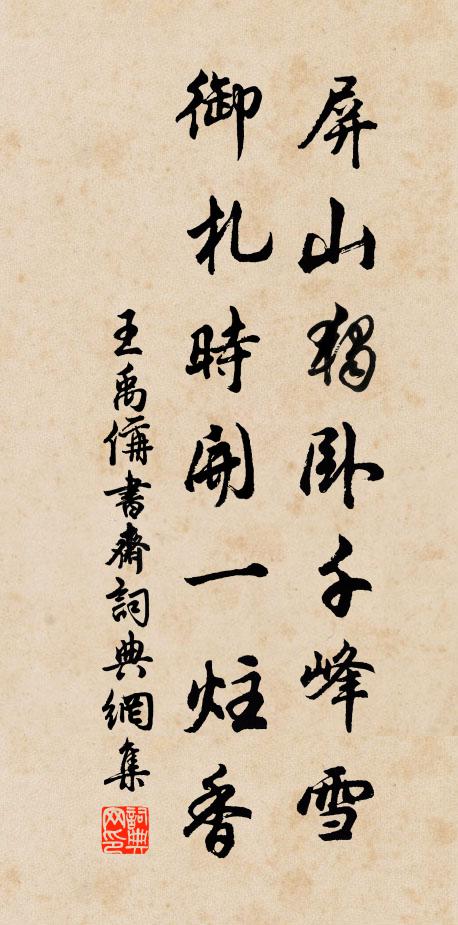 屏山獨卧千峰雪
御札時開一炷香
王禹偁書齋詞典網集
詞典网印